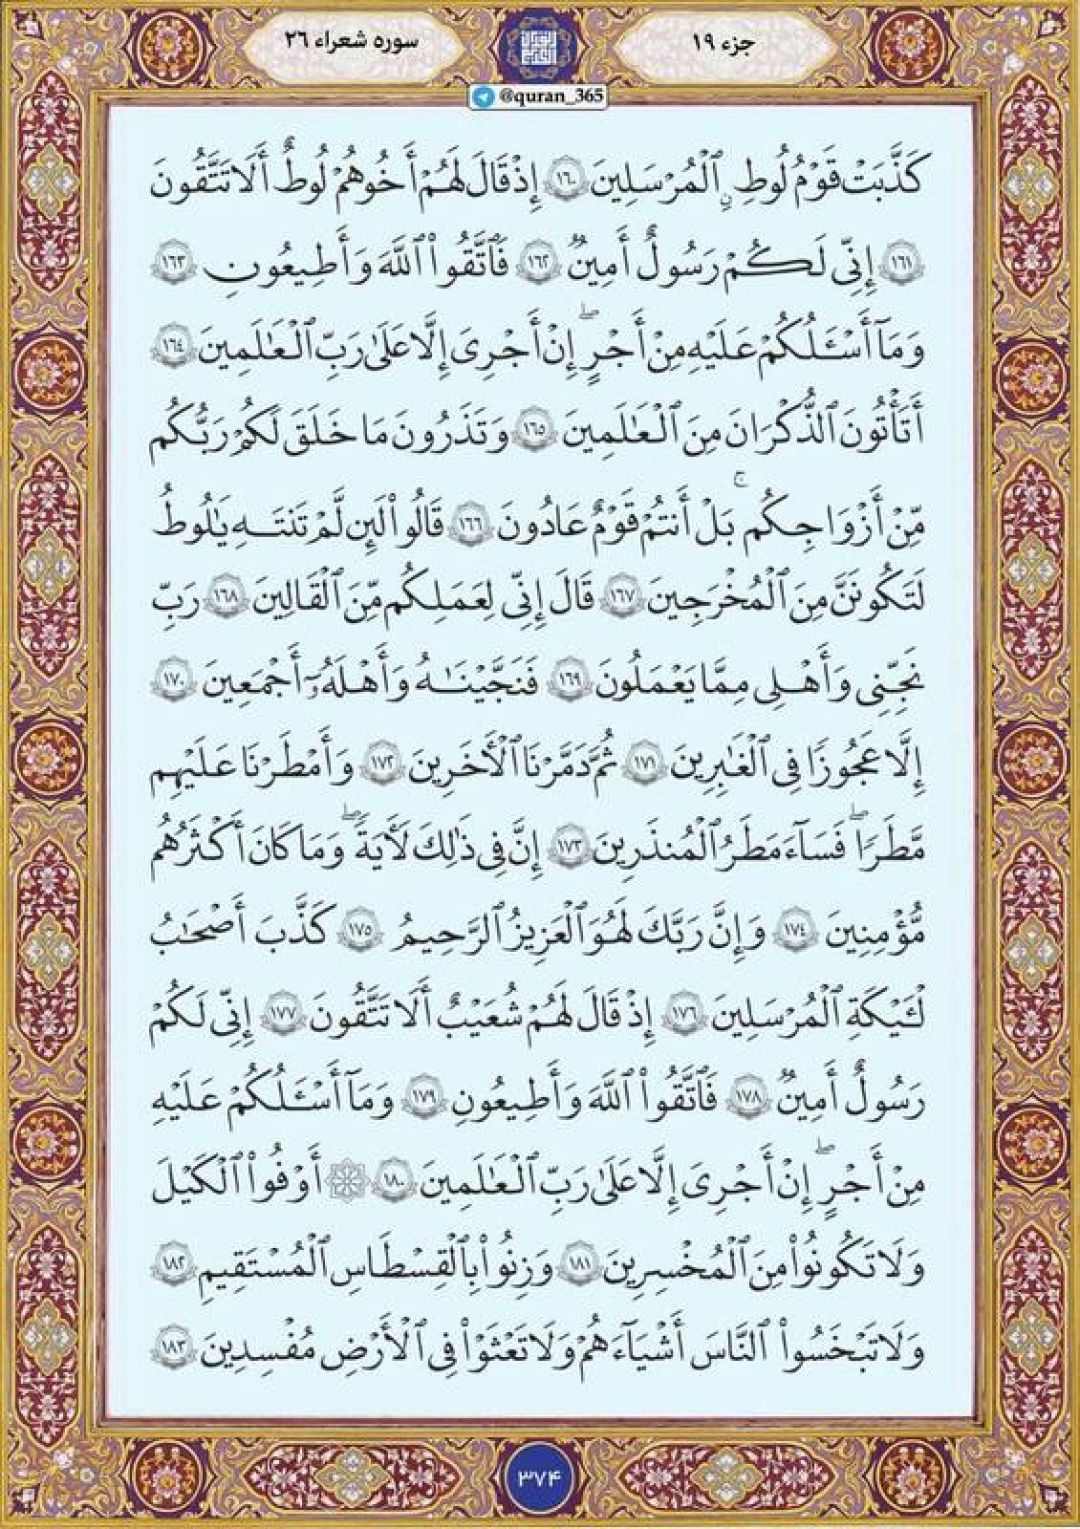 جزء ۱۹
سوره شعراء ۲۶
@quran_365
كَذَّبَتْ قَوْمُ لُوطٍ ٱلْمُرْسَلِينَ ١٦٠ إِذْ قَالَ لَهُمْ أَخُوهُمْ لُوطٌ أَلَا تَتَّقُونَ
١٦١ إِنِّى لَكُمْ رَسُولٌ أَمِينٌ ١٦٢ فَٱتَّقُوا۟ ٱللَّهَ وَأَطِيعُونِ ١٦٣
وَمَآ أَسْـَٔلُكُمْ عَلَيْهِ مِنْ أَجْرٍ ۖ إِنْ أَجْرِىَ إِلَّا عَلَىٰ رَبِّ ٱلْعَـٰلَمِينَ ١٦٤
أَتَأْتُونَ ٱلذُّكْرَانَ مِنَ ٱلْعَـٰلَمِينَ ١٦٥ وَتَذَرُونَ مَا خَلَقَ لَكُمْ رَبُّكُم
مِّنْ أَزْوَاجِكُم ۚ بَلْ أَنتُمْ قَوْمٌ عَادُونَ ١٦٦ قَالُوا۟ لَئِن لَّمْ تَنتَهِ يَـٰلُوطُ
لَتَكُونَنَّ مِنَ ٱلْمُخْرَجِينَ ١٦٧ قَالَ إِنِّى لِعَمَلِكُم مِّنَ ٱلْقَالِينَ ١٦٨ رَبِّ
نَجِّنِى وَأَهْلِى مِمَّا يَعْمَلُونَ ١٦٩ فَنَجَّيْنَـٰهُ وَأَهْلَهُۥٓ أَجْمَعِينَ ١٧٠
إِلَّا عَجُوزًا فِى ٱلْغَـٰبِرِينَ ١٧١ ثُمَّ دَمَّرْنَا ٱلْأَخَرِينَ ١٧٢ وَأَمْطَرْنَا عَلَيْهِم
مَّطَرًا ۖ فَسَآءَ مَطَرُ ٱلْمُنذَرِينَ ١٧٣ إِنَّ فِى ذَٰلِكَ لَـَٔايَةً ۖ وَمَا كَانَ أَكْثَرُهُم
مُّؤْمِنِينَ ١٧٤ وَإِنَّ رَبَّكَ لَهُوَ ٱلْعَزِيزُ ٱلرَّحِيمُ ١٧٥ كَذَّبَ أَصْحَـٰبُ
لْـَٔيْكَةِ ٱلْمُرْسَلِينَ ١٧٦ إِذْ قَالَ لَهُمْ شُعَيْبٌ أَلَا تَتَّقُونَ ١٧٧ إِنِّى لَكُمْ
رَسُولٌ أَمِينٌ ١٧٨ فَٱتَّقُوا۟ ٱللَّهَ وَأَطِيعُونِ ١٧٩ وَمَآ أَسْـَٔلُكُمْ عَلَيْهِ
مِنْ أَجْرٍ ۖ إِنْ أَجْرِىَ إِلَّا عَلَىٰ رَبِّ ٱلْعَـٰلَمِينَ ١٨٠ ۞ أَوْفُوا۟ ٱلْكَيْلَ
وَلَا تَكُونُوا۟ مِنَ ٱلْمُخْسِرِينَ ١٨١ وَزِنُوا۟ بِٱلْقِسْطَاسِ ٱلْمُسْتَقِيمِ ١٨٢
وَلَا تَبْخَسُوا۟ ٱلنَّاسَ أَشْيَآءَهُمْ وَلَا تَعْثَوْا۟ فِى ٱلْأَرْضِ مُفْسِدِينَ ١٨٣
۳۷۴